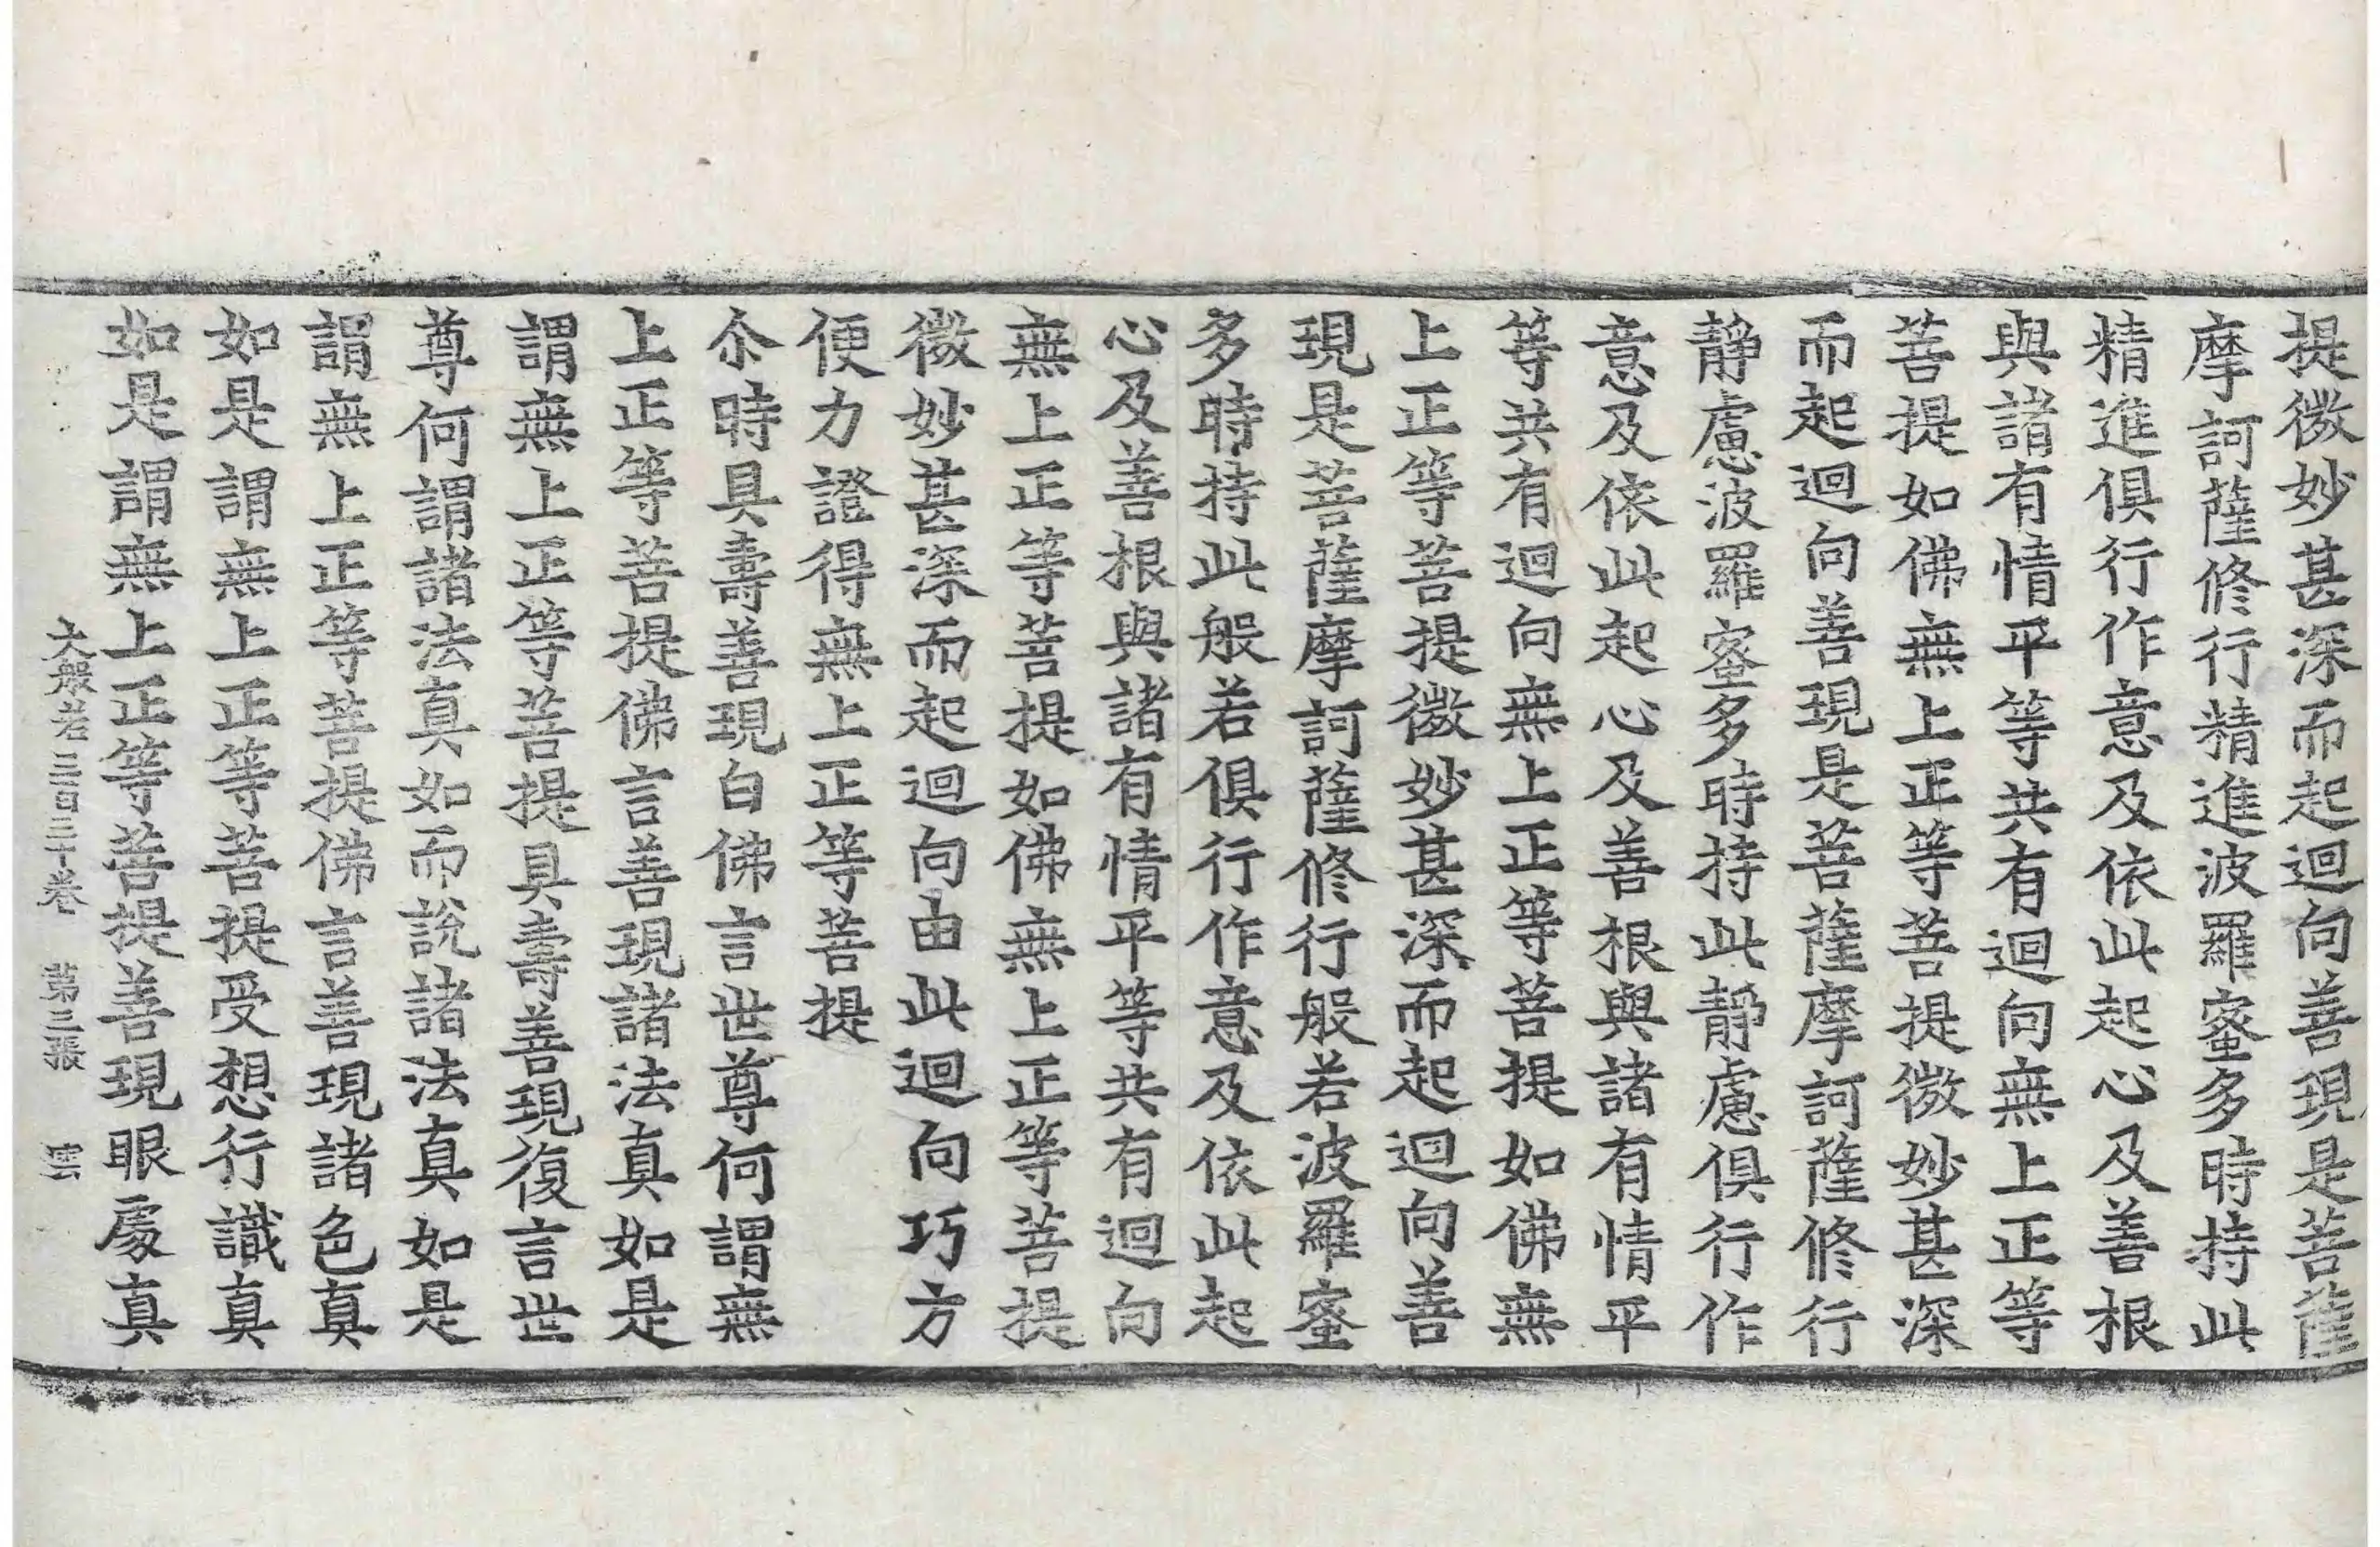 提微妙甚深而起迴向善現是菩薩
摩訶薩修行精進波羅蜜多時持此
精進俱行作意及依此起心及善根
與諸有情平等共有迴向無上正等
菩提如佛無上正等菩提微妙甚深
而起迴向善現是菩薩摩訶薩修行
靜慮波羅蜜多時持此靜慮俱行作
意及依此起心及善根與諸有情平
等共有迴向無上正等菩提如佛無
上正等菩提微妙甚深而起迴向善
現是菩薩摩訶薩修行般若波羅蜜
多時持此般若俱行作意及依此起
心及善根與諸有情平等共有迴向
無上正等菩提如佛無上正等菩提
微妙甚深而起迴向由此迴向巧方
便力證得無上正等菩提
尒時具壽善現白佛言世尊何謂無
上正等菩提佛言善現諸法真如是
謂無上正等菩提具壽善現復言世
尊何謂諸法真如而說諸法真如是
謂無上正等菩提佛言善現諸色真
如是謂無上正等菩提受想行識真
如是謂無上正等菩提善現眼處真
大般若三百三十卷 第三張